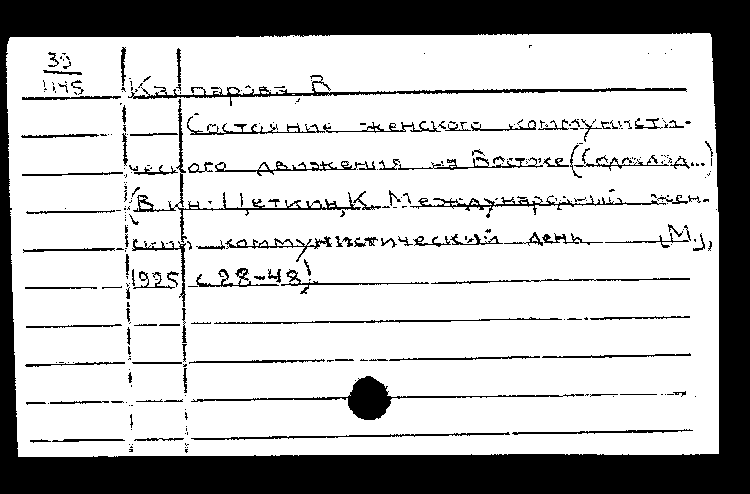 39
1145
Каспарова, В
Состояние женского коммунисти-
ческого движения на Востоке (Содоклад...)
(В кн.: Цеткин, К. Международный жен-
ский коммунистический день. [М.],
1925, с 28-48).